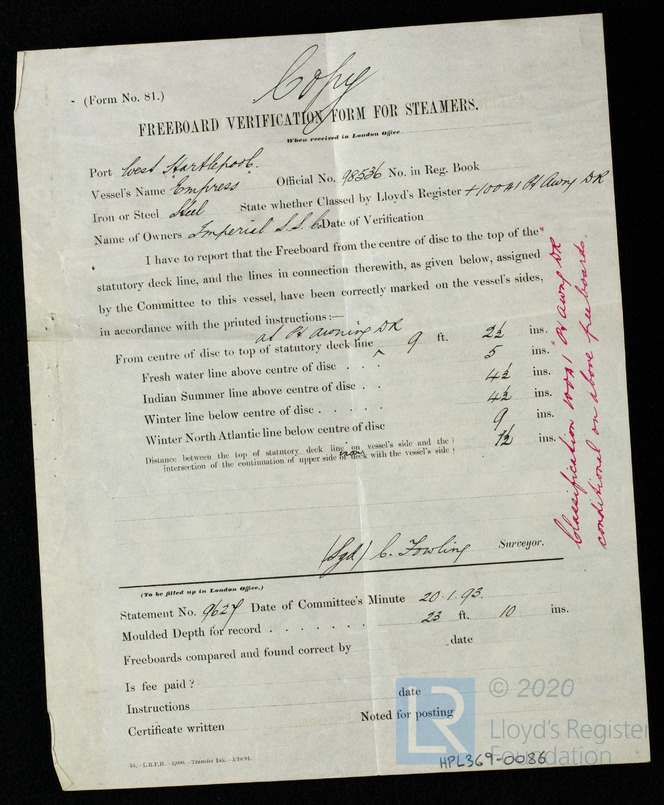 Copy
(Form No. 81.)
FREEBOARD VERIFICATION FORM FOR STEAMERS.
When received in London Office
Port West Hartlepool.
Vessel's Name Empress Official No. 98536 No. in Reg. Book
Iron or Steel Steel State whether Classed by Lloyd's Register +100A1 Pt Awng DK
Name of Owners Imperial S.S. Co Date of Verification
I have to report that the Freeboard from the centre of disc to the top of the
statutory deck line, and the lines in connection therewith, as given below, assigned
by the Committee to this vessel, have been correctly marked on the vessel's sides,
in accordance with the printed instructions :—
at Pt awning DK
From centre of disc to top of statutory deck line 9 ft. 2½ ins.
Fresh water line above centre of disc . . . 5 ins.
Indian Summer line above centre of disc . . 4½ ins.
Winter line below centre of disc . . . . . 4½ ins.
Winter North Atlantic line below centre of disc 9 ins.
Distance between the top of statutory deck line on vessel's side and the
intersection of the continuation of upper side of deck with the vessel's side 1½ ins.
"Classification 100A1 Pt Awng DK
conditional on above freeboards."
(Sgd) C. Fowling Surveyor.
(To be filled up in London Office.)
Statement No. 9627 Date of Committee's Minute 20.1.93.
Moulded Depth for record . . . . . . . 23 ft. 10 ins.
Freeboards compared and found correct by date
Is fee paid ? date
Instructions
Certificate written Noted for posting
LR
© 2020
Lloyd's Register
Foundation
HPL369-0086